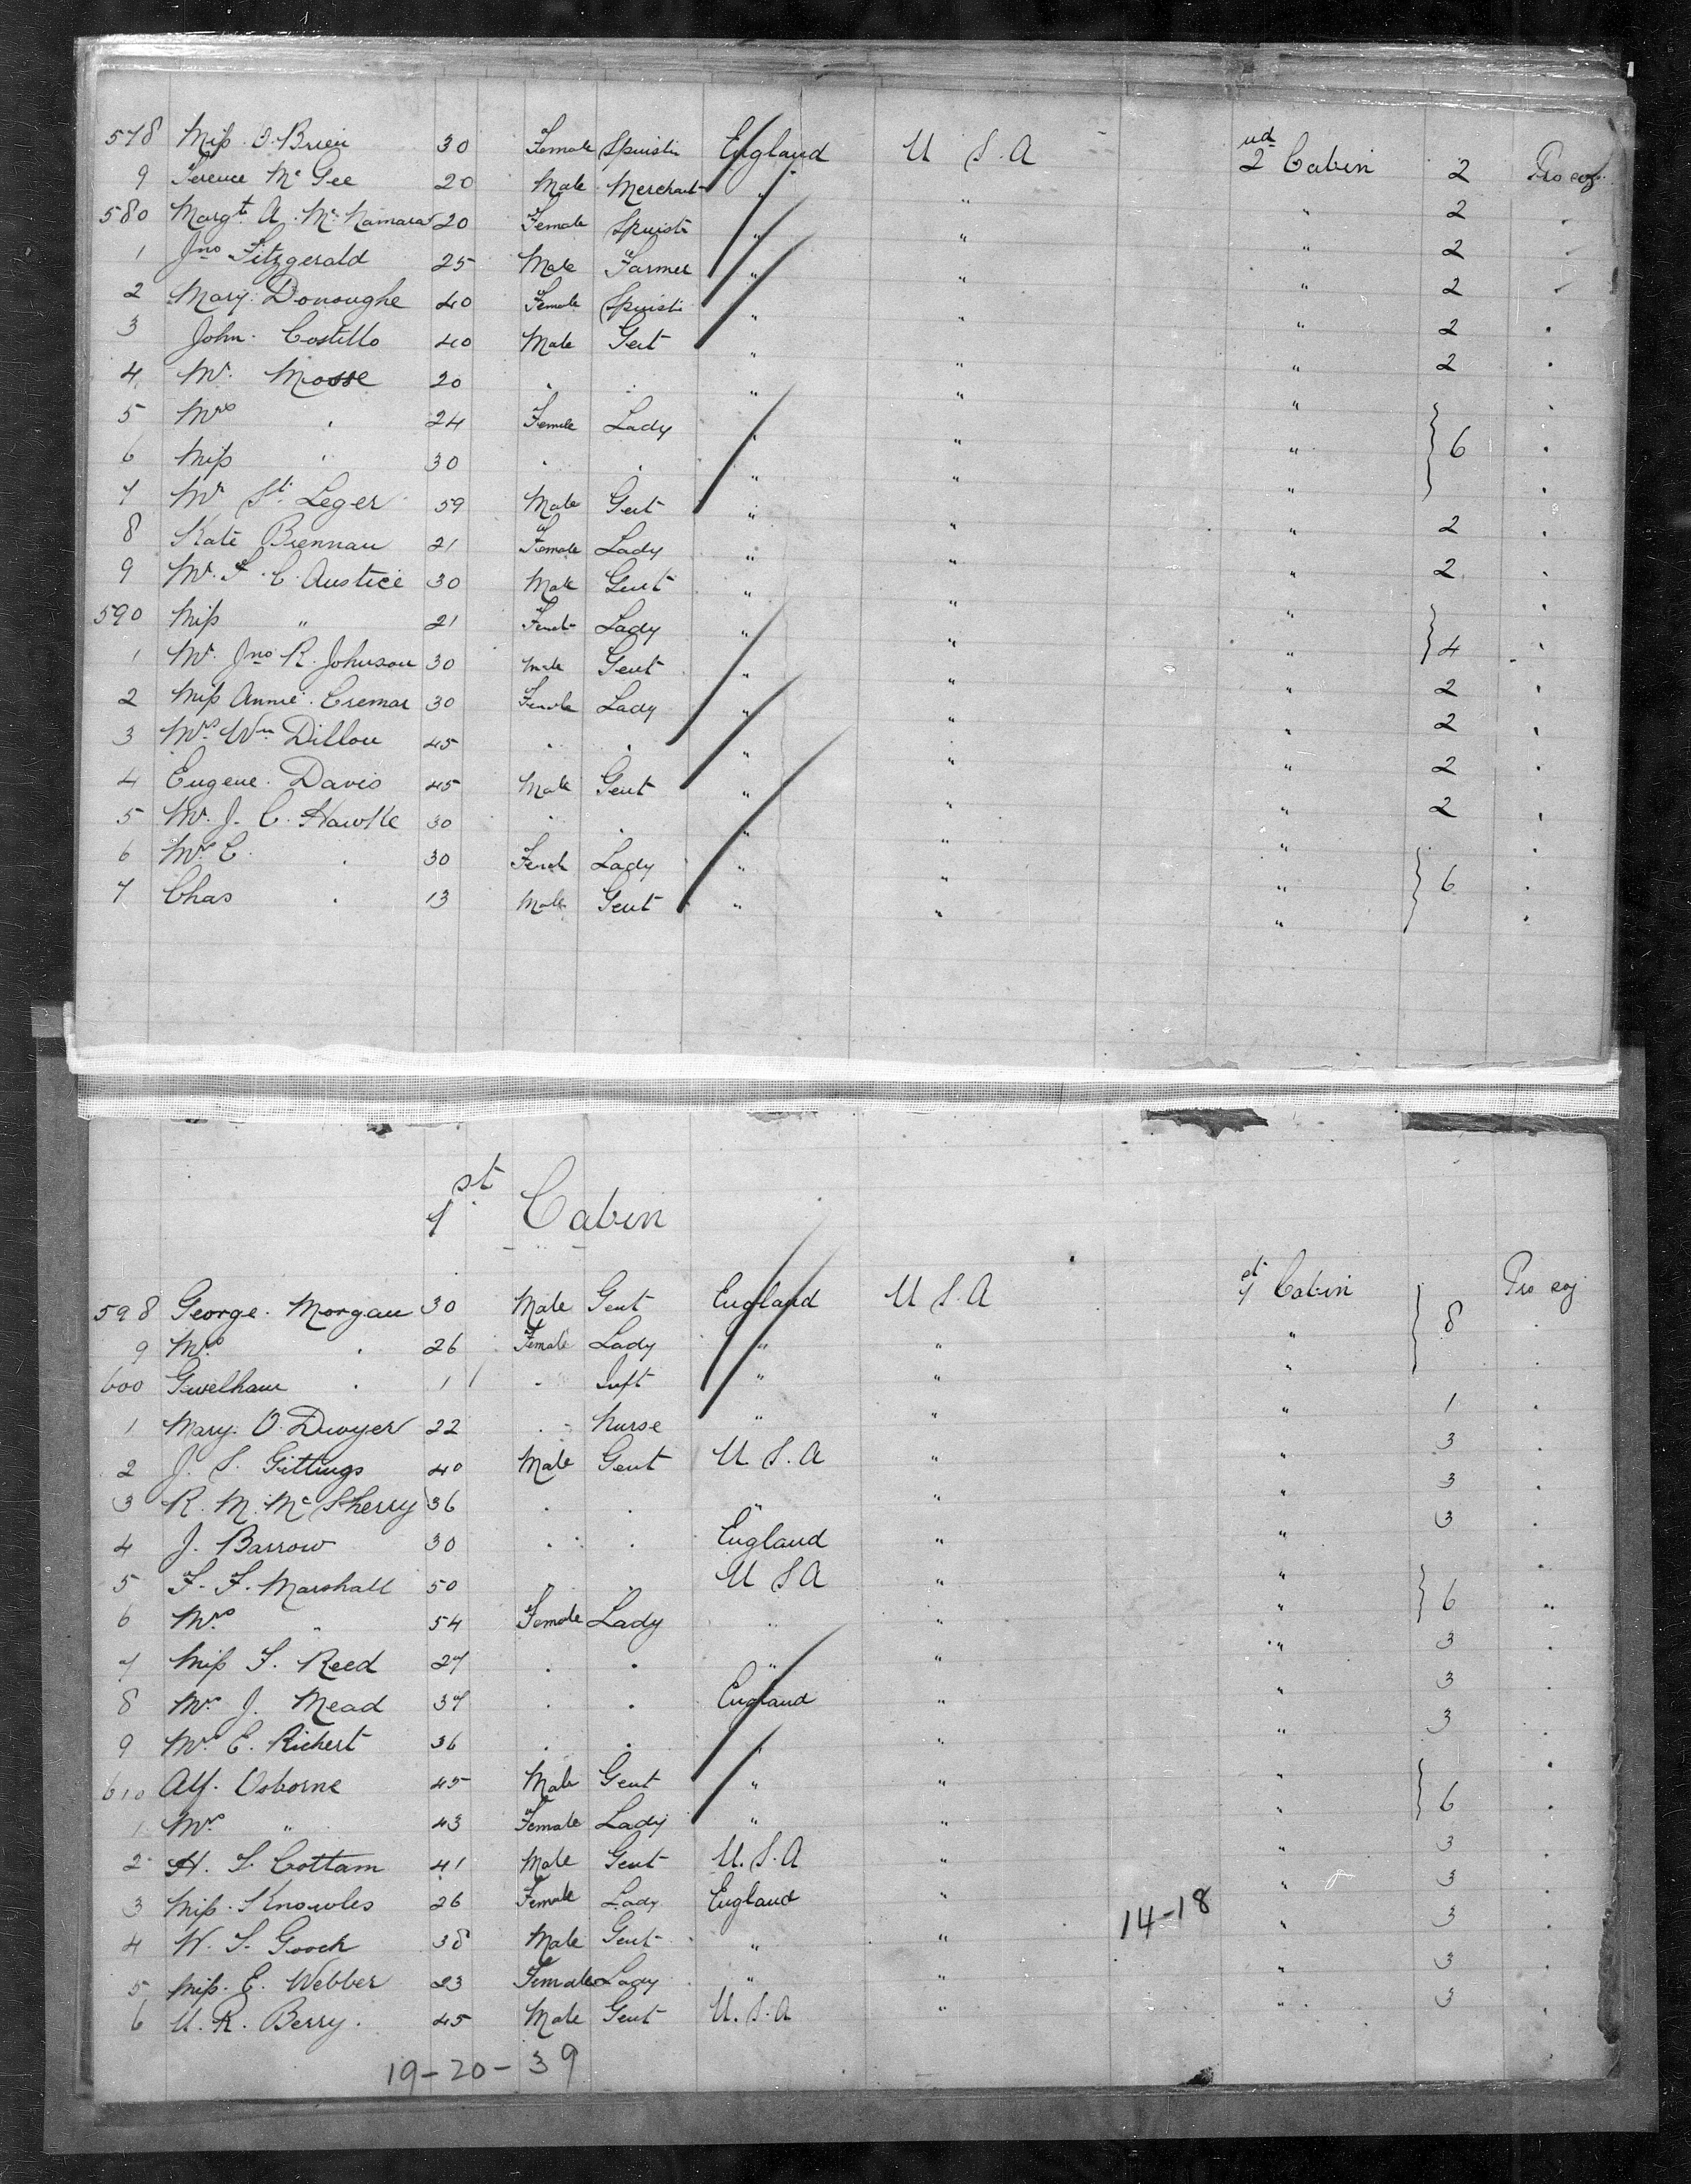 578 Miss O. Brien 30 Female Spinstr England U S. A 2nd Cabin 2 Pro coy.
9 Terence Mc Gee 20 Male Merchant " " " 2
580 Margt A. Mc Namara 20 Female Spinstr " " " 2
1 Jno Fitzgerald 25 Male Farmer " " " 2
2 Mary Donoughe 40 Female Spinstr " " " 2
3 John. Costillo 40 Male Gent " " " 2
4 Mr. Mosse 20 " " " " "
5 Mrs " 24 Female Lady " " " 6
6 Miss " 30 " " " " "
7 Mr St. Leger 59 Male Gent " " " 2
8 Kate Brennan 21 Female Lady " " " 2
9 Mr. F. C. Austice 30 Male Gent " " "
590 Miss " 21 Female Lady " " " 4
1 Mr. Jno R. Johnson 30 Male Gent " " " 2
2 Miss Annie Cremar 30 Female Lady " " " 2
3 Mrs Wm Dillon 45 " " " " " 2
4 Eugene. Davis 45 Male Gent " " " 2
5 Mr. J. C. Hawke 30 " " " " "
6 Mrs C. " 30 Female Lady " " " 6
7 Chas " 13 Male Gent " " "
1st Cabin
598 George. Morgan 30 Male Gent England U S. A 1st Cabin 8 Pro coy
9 Mrs " 26 Female Lady " " "
600 Gwelham " 11 " Inft " " "
1 Mary. O. Dwyer 22 " Nurse " " " 1
2 J. S. Gittings 40 Male Gent U S. A " " 3
3 R. M. Mc Sherry 36 " " " " " 3
4 J. Barrow 30 " " England " " 3
5 F. F. Marshall 50 " " U S A " "
6 Mrs " 54 Female Lady " " " 6
7 Miss F. Reed 27 " " " " " 3
8 Mrs J. Mead 37 " " England " " 3
9 Mrs E. Richert 36 " " " " " 3
610 Alf. Osborne 45 Male Gent " " "
1 Mrs " 43 Female Lady " " " 6
2 H. S. Cottam 41 Male Gent U. S. A " " 3
3 Miss. Knowles 26 Female Lady England " " 3
4 W. S. Gooch 38 Male Gent " " 14-18 " 3
5 Miss. E. Webber 23 Female Lady " " " 3
6 U. R. Berry. 45 Male Gent U. S. A " " 3
19-20-39